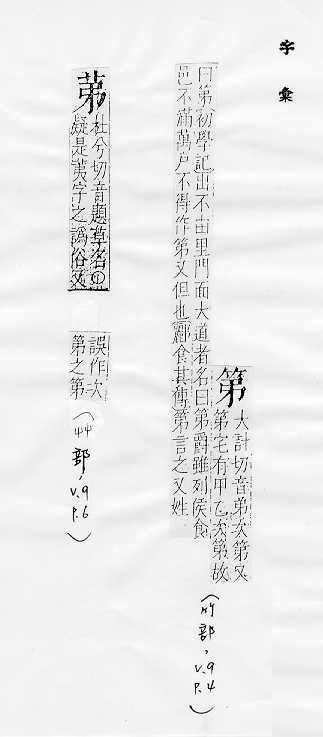 字彙
第
大計切音弟次第又
第宅有甲乙次第故
曰第初學記出不由里門面大道者名曰第爵雖列侯食
邑不滿萬戶不得作第又但也酈食其傳第言之又姓
(竹部, v.9 P.4)
苐
杜兮切音題草名○
疑是荑字之譌俗又
誤作次
第之第
(艸部, v.9 P.6)